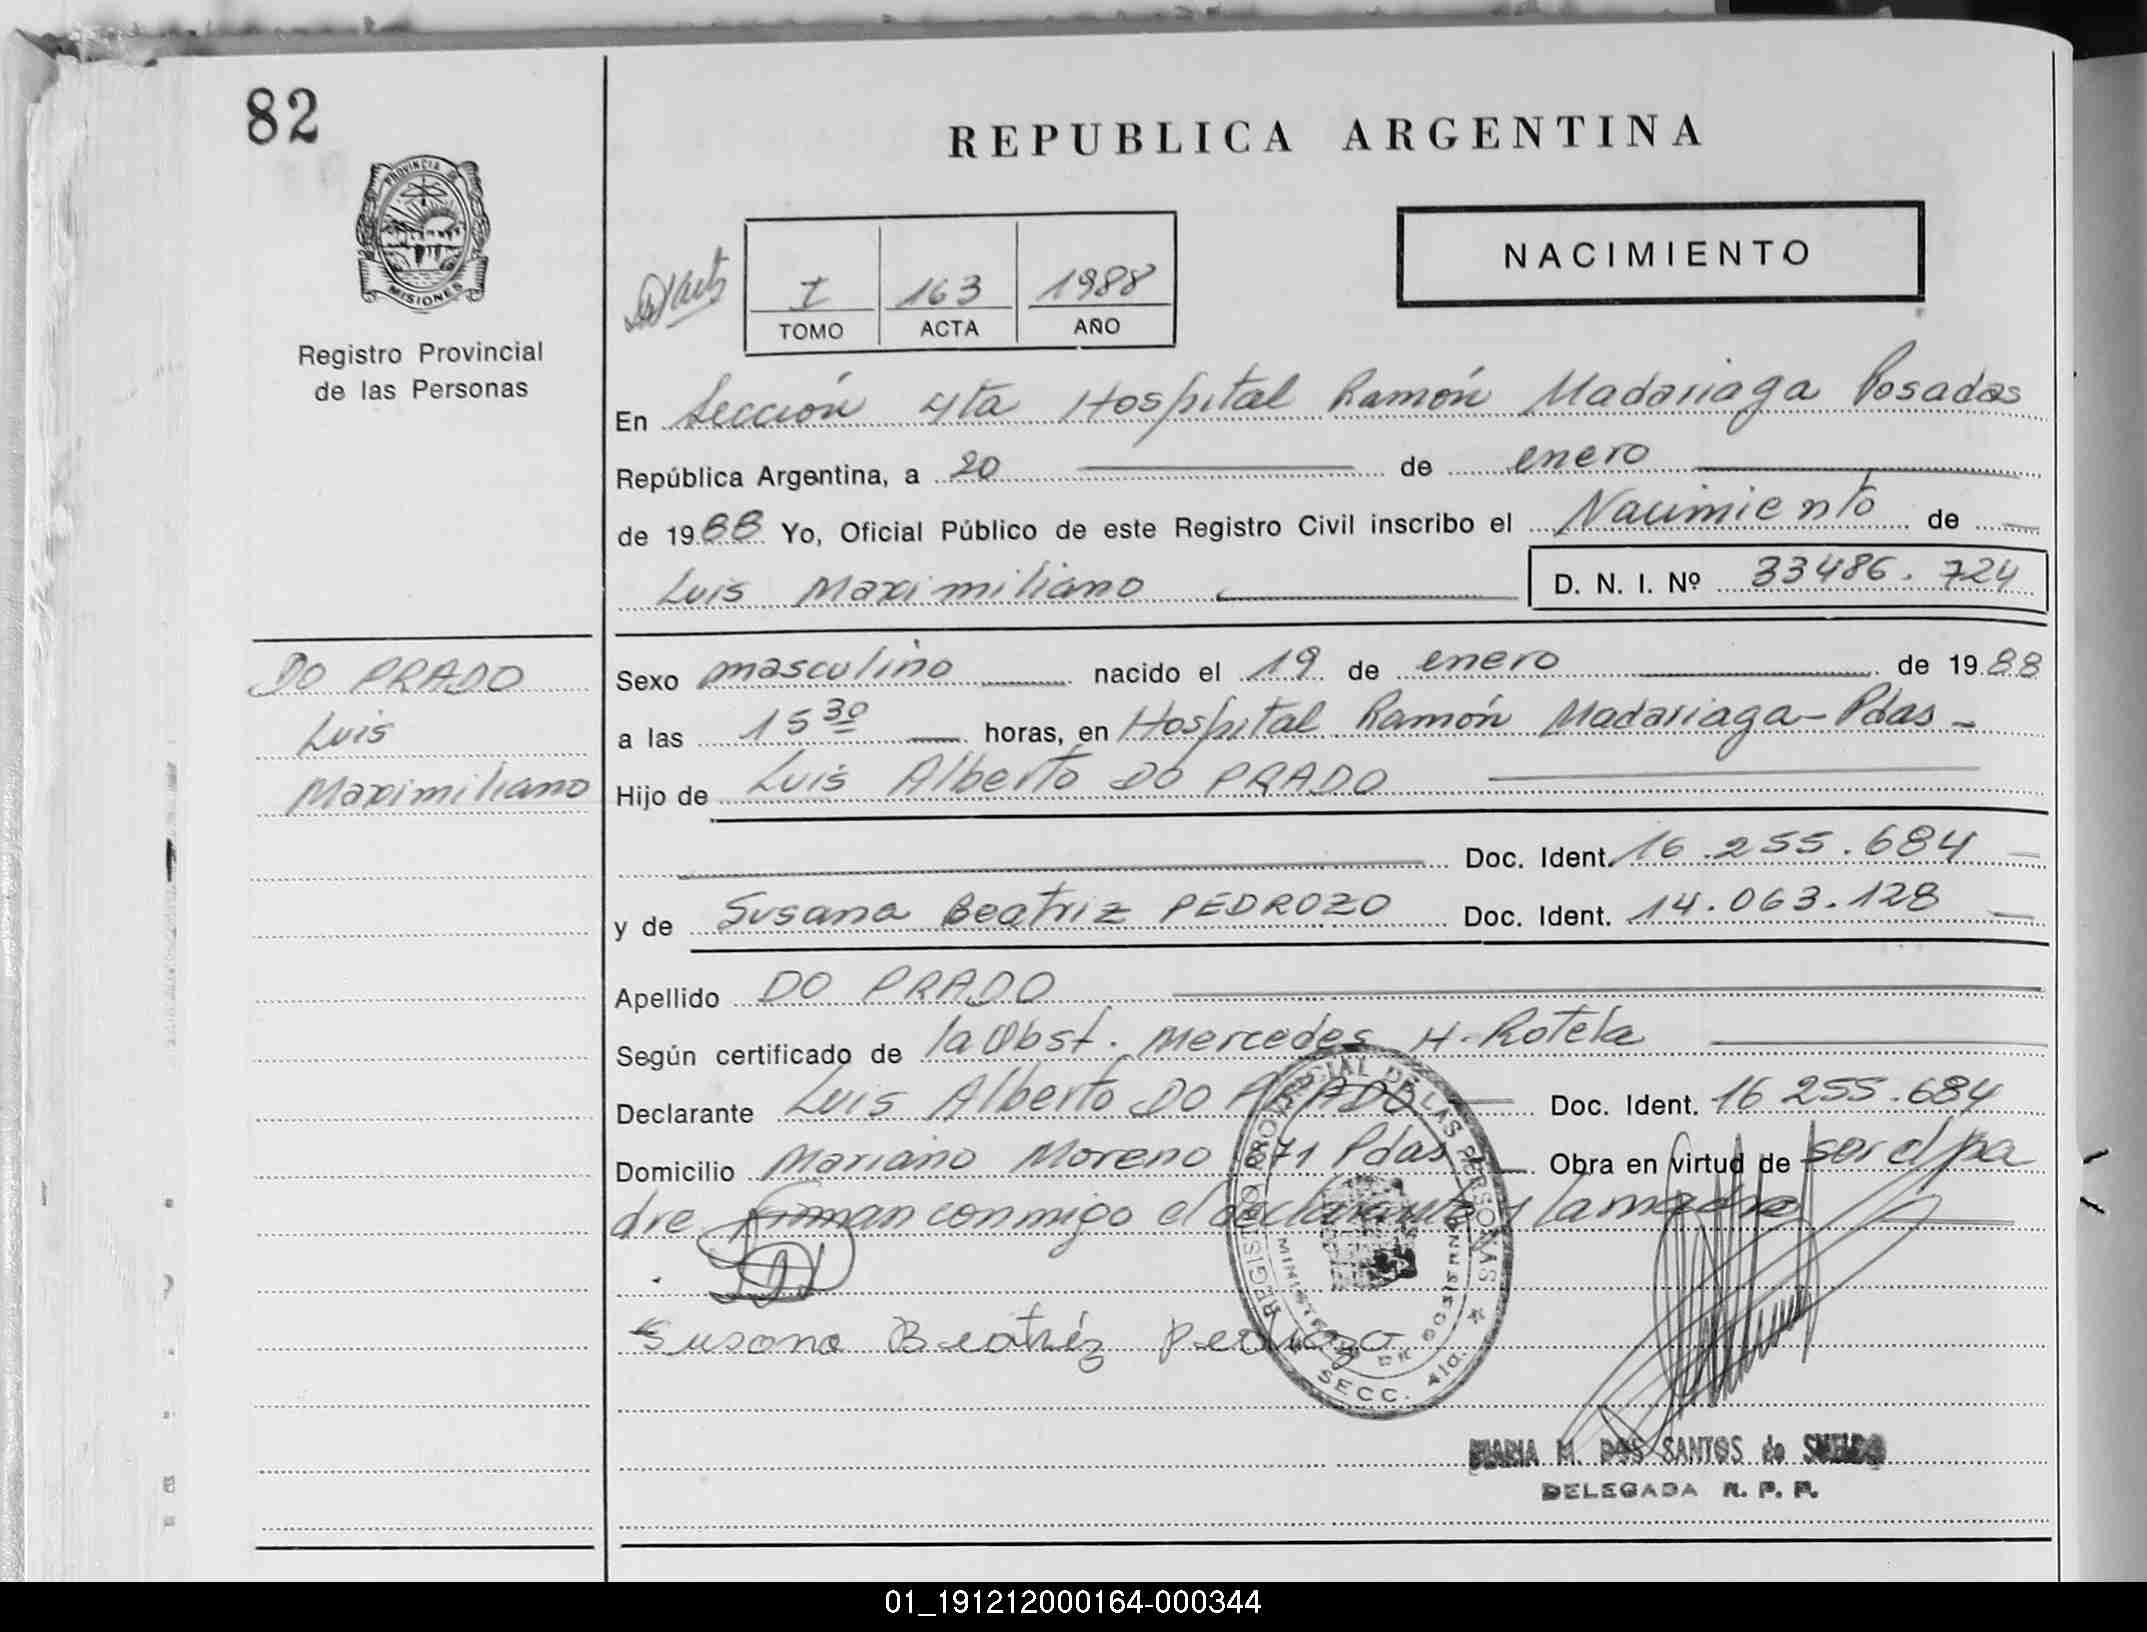 82
REPUBLICA ARGENTINA
PROVINCIA DE
MISIONES
NACIMIENTO
I 163 1988
TOMO ACTA AÑO
Registro Provincial
de las Personas
En Sección 4ta Hospital Ramón Madariaga Posadas
República Argentina, a 20 de enero
de 1988 Yo, Oficial Público de este Registro Civil inscribo el Nacimiento de
Luis Maximiliano D. N. I. Nº 33486.724
DO PRADO
Luis
Maximiliano
Sexo masculino nacido el 19 de enero de 1988
a las 15 30 horas, en Hospital Ramón Madariaga - Pdas -
Hijo de Luis Alberto DO PRADO
Doc. Ident. 16.255.684
y de Susana Beatriz PEDROZO Doc. Ident. 14.063.128
Apellido DO PRADO
Según certificado de la Obst. Mercedes H. Rotela
Declarante Luis Alberto DO PRADO Doc. Ident. 16 255.684
Domicilio Mariano Moreno 871 Pdas Obra en virtud de ser el pa
dre Firman conmigo el declarante y la madre
Susana Beatriz Pedrozo
REGISTRO PROVINCIAL DE LAS PERSONAS
MINISTERIO DE GOBIERNO
SECC. 4ta.
MARIA M. DOS SANTOS de
DELEGADA R. P. P.
01_191212000164-000344